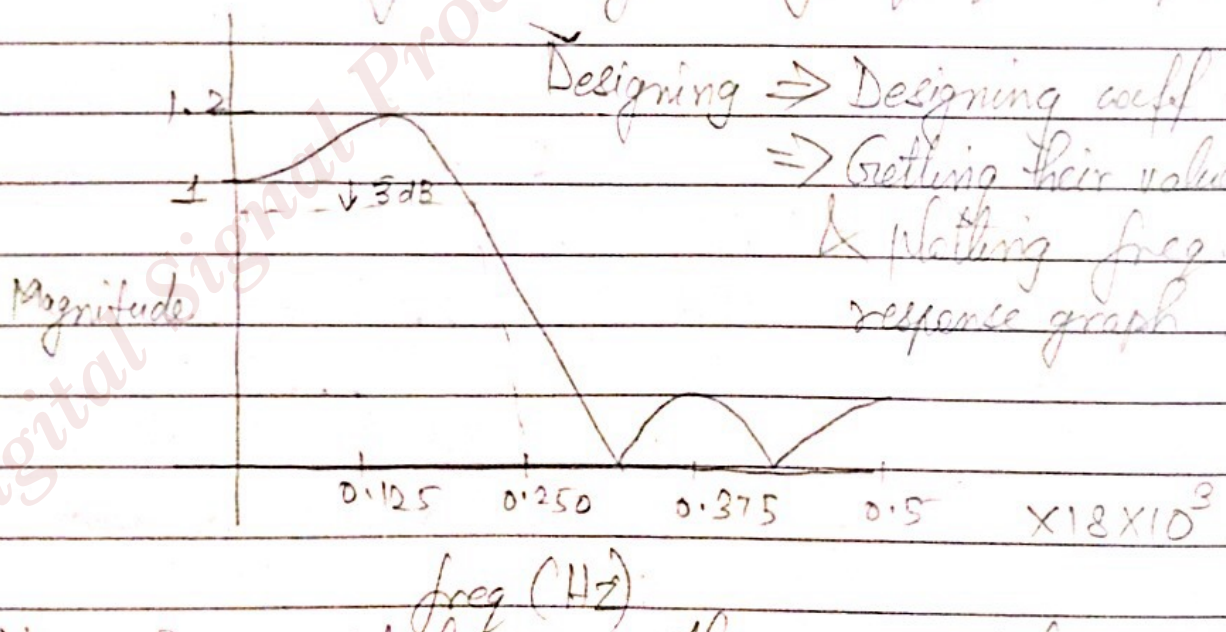 Designing ⇒ Designing coeff
⇒ Getting their valu
1.2
1
↓ 3dB
& Plotting freq
response graph
Magnitude
0.125 0.250 0.375 0.5 ×18×10³
freq (Hz)